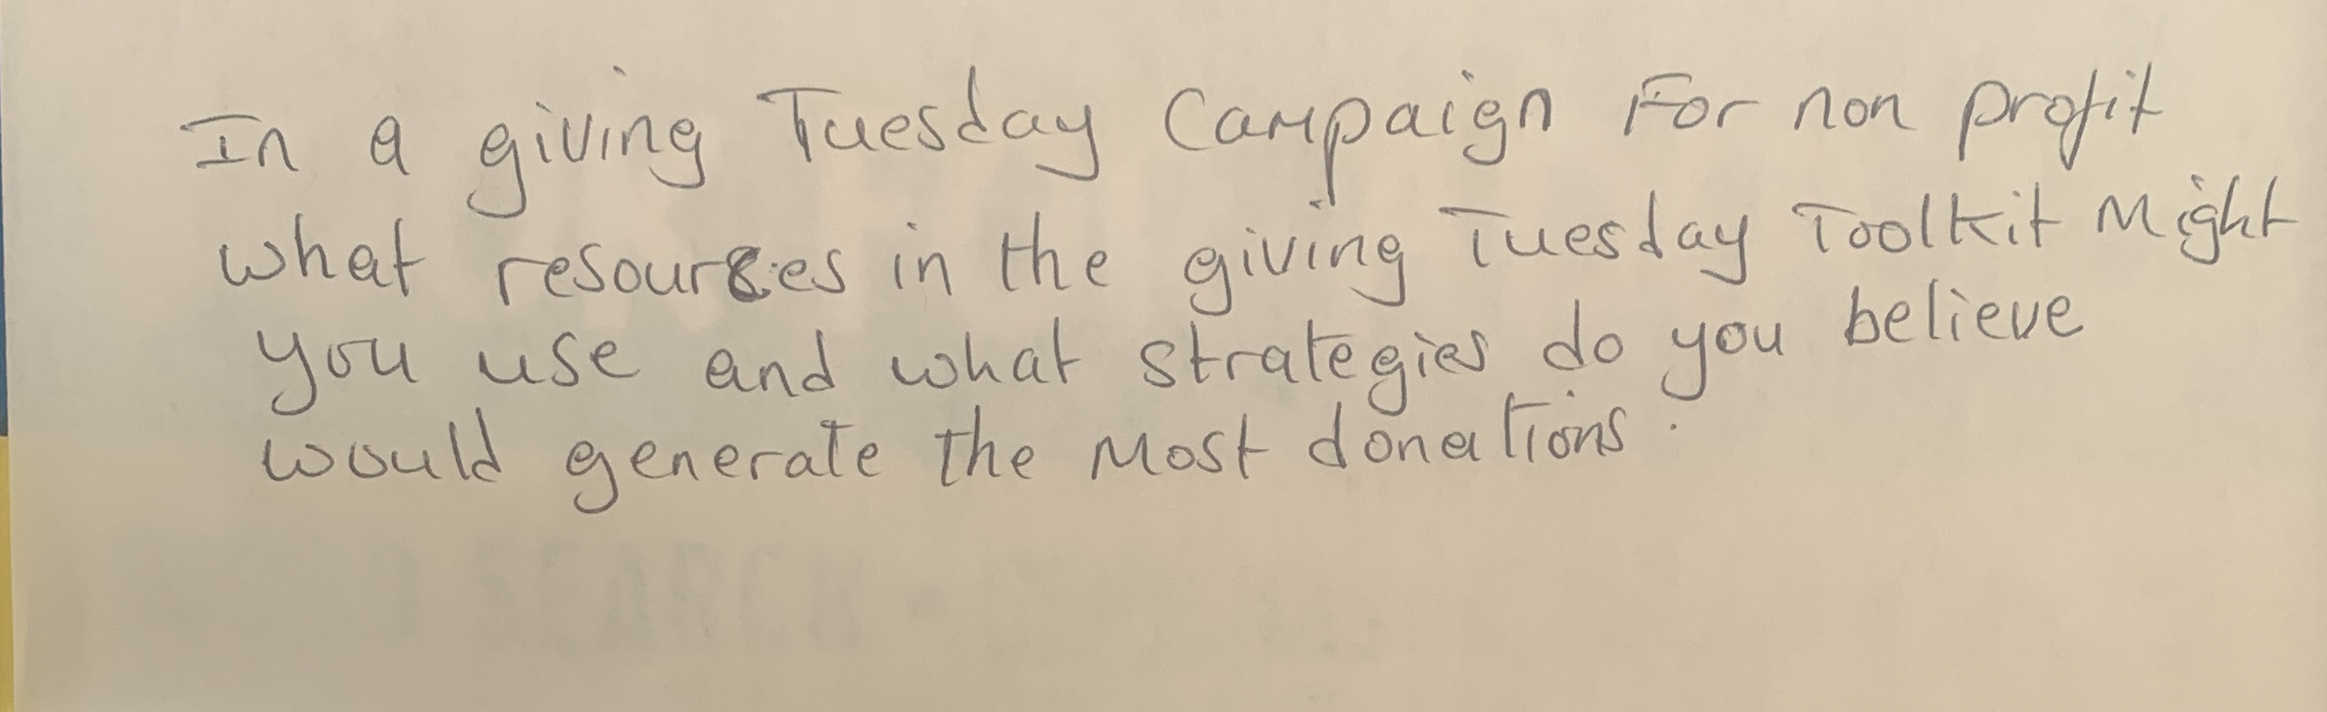 In a giving Tuesday Campaign For non profit
what resources in the giving Tuesday Toolkit Might
you use and what strategies do you believe
would generate the Most donations.